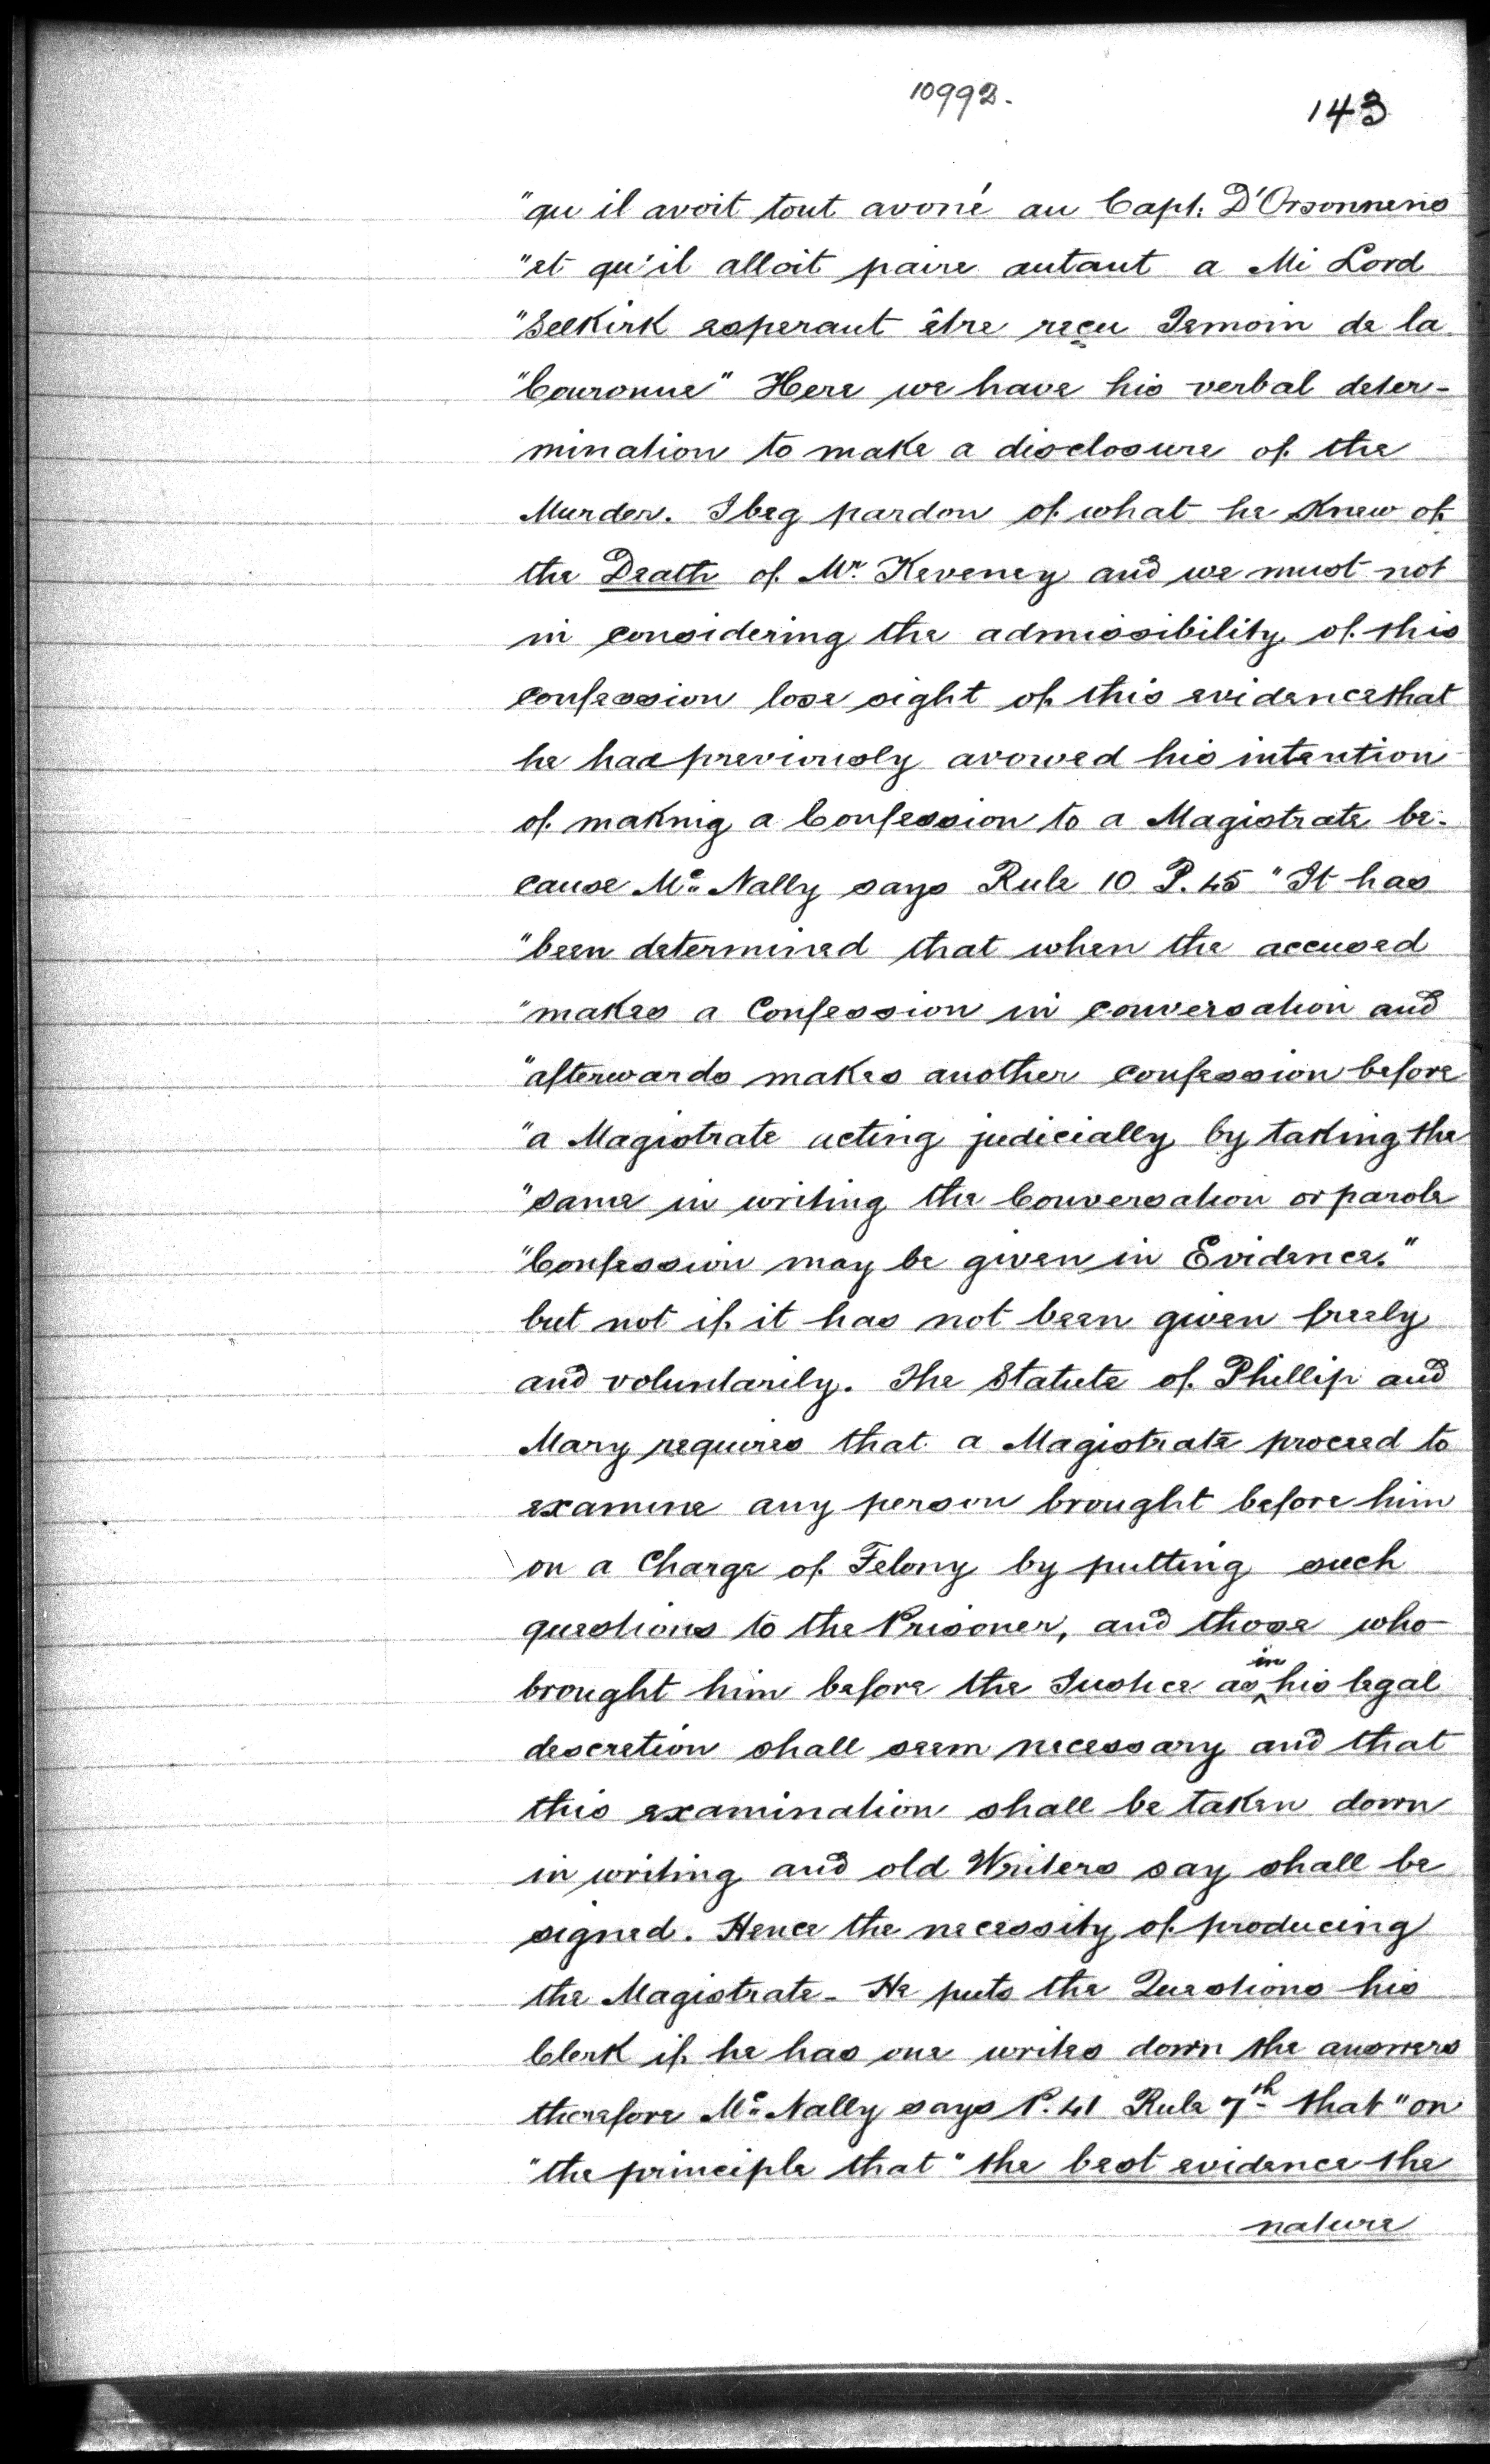 10992.
143
"qu il avoit tout avoué au Capt: D'Orsonnens
"et qu'il alloit paire autant a Mi Lord
"Selkirk esperant être reçu Temoin de la
"Couronne" Here we have his verbal deter-
mination to make a disclosure of the
Murder. I beg pardon of what he Knew of
the Death of Mr. Keveney and we must not
in considering the admissibility of this
confession lose sight of this evidence that
he had previously avowed his intention
of making a Confession to a Magistrate be-
cause Mc. Nally says Rule 10 P. 45 "It has
"been determined that when the accused
"makes a Confession in conversation and
"afterwards makes another confession before
"a Magistrate acting judicially by taking the
"same in writing the Conversation or parole
"Confession may be given in Evidence."
but not if it has not been given freely
and voluntarily. The Statute of Phillip and
Mary requires that a Magistrate proceed to
examine any person brought before him
on a Charge of Felony by putting such
questions to the Prisoner, and those who
brought him before the Justice as in his legal
descretion shall seem necessary and that
this examination shall be taken down
in writing and old Writers say shall be
signed. Hence the necessity of producing
the Magistrate - He puts the Questions his
Clerk if he has one writes down the answers
therefore Mc. Nally says P. 41 Rule 7th that "on
"the principle that "the best evidence the
nature